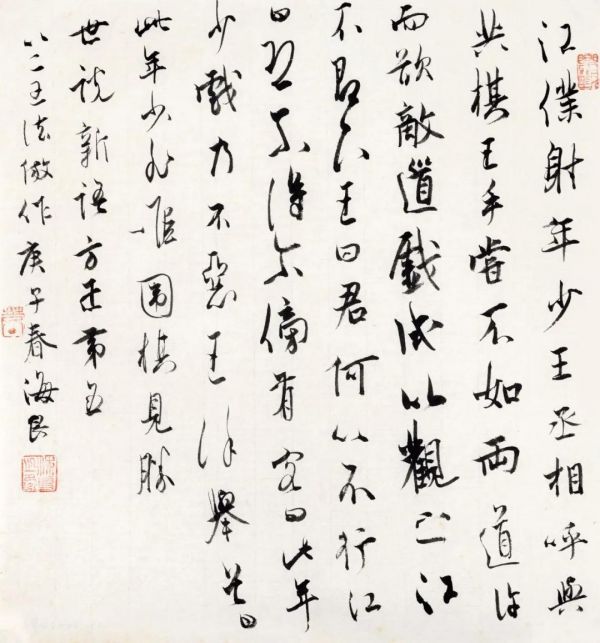 江僕射年少王丞相呼與
共棋王手嘗不如兩道許
而欲敵道戲試以觀之江
不即下王曰君何以不行江
曰恐不得尔傍有客曰此年
少戲乃不惡王徐舉首曰
此年少非唯圍棋見勝
世說新語方正第五
以二王法倣作庚子春海良